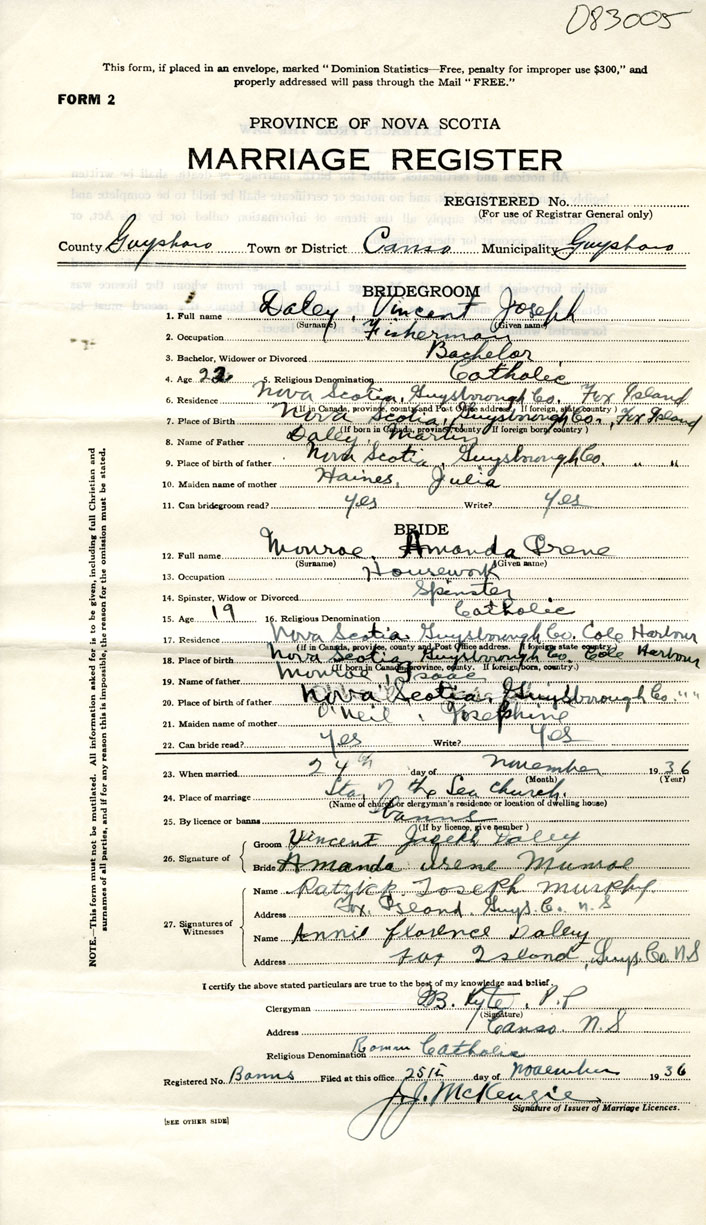 083005
This form, if placed in an envelope, marked "Dominion Statistics—Free, penalty for improper use $300," and
properly addressed will pass through the Mail "FREE."
FORM 2
PROVINCE OF NOVA SCOTIA
MARRIAGE REGISTER
REGISTERED No.
(For use of Registrar General only)
County Guysboro Town or District Canso Municipality Guysboro
BRIDEGROOM
1. Full name Daley, Vincent Joseph
(Surname) (Given name)
2. Occupation Fisherman
3. Bachelor, Widower or Divorced Bachelor
4. Age 22 5. Religious Denomination Catholic
6. Residence Nova Scotia, Guysborough Co. Fox Island
(If in Canada, province, county and Post Office address. If foreign, state country)
7. Place of Birth Nova Scotia, Guysborough Co., Fox Island
(If born in Canada, province, county. If foreign born, country)
8. Name of Father Daley, Martin
9. Place of birth of father Nova Scotia, Guysborough Co. " "
10. Maiden name of mother Haines, Julia
11. Can bridegroom read? Yes Write? Yes
BRIDE
12. Full name Monroe, Amanda Irene
(Surname) (Given name)
13. Occupation Housework
14. Spinster, Widow or Divorced Spinster
15. Age 19 16. Religious Denomination Catholic
17. Residence Nova Scotia, Guysborough Co. Cole Harbour
(If in Canada, province, county and Post Office address. If foreign state country)
18. Place of birth Nova Scotia, Guysborough Co. Cole Harbour
(If born in Canada, province, county. If foreign born, country.)
19. Name of father Monroe, Isaac
20. Place of birth of father Nova Scotia, Guysborough Co. " "
21. Maiden name of mother O'Neil, Josephine
22. Can bride read? Yes Write? Yes
23. When married 24th day of November 1936
(Month) (Year)
24. Place of marriage Star of the Sea church.
(Name of church or clergyman's residence or location of dwelling house)
25. By licence or banns Banns
(If by licence, give number)
26. Signature of
Groom Vincent Joseph Daley
Bride Amanda Irene Munroe
27. Signatures of Witnesses
Name Joseph Murphy
Address Fox Island, Guys. Co. N.S
Name Annie Florence Daley
Address Fox Island, Guys. Co. N.S
I certify the above stated particulars are true to the best of my knowledge and belief.
Clergyman B. Kyte, P.P
(Signature)
Address Canso. N.S
Religious Denomination Roman Catholic
Registered No. Banns Filed at this office 25th day of November 1936
J.J. McKenzie
Signature of Issuer of Marriage Licences.
[SEE OTHER SIDE]
NOTE.—This form must not be mutilated. All information asked for is to be given, including full Christian and
surnames of all parties, and if for any reason this is impossible, the reason for the omission must be stated.